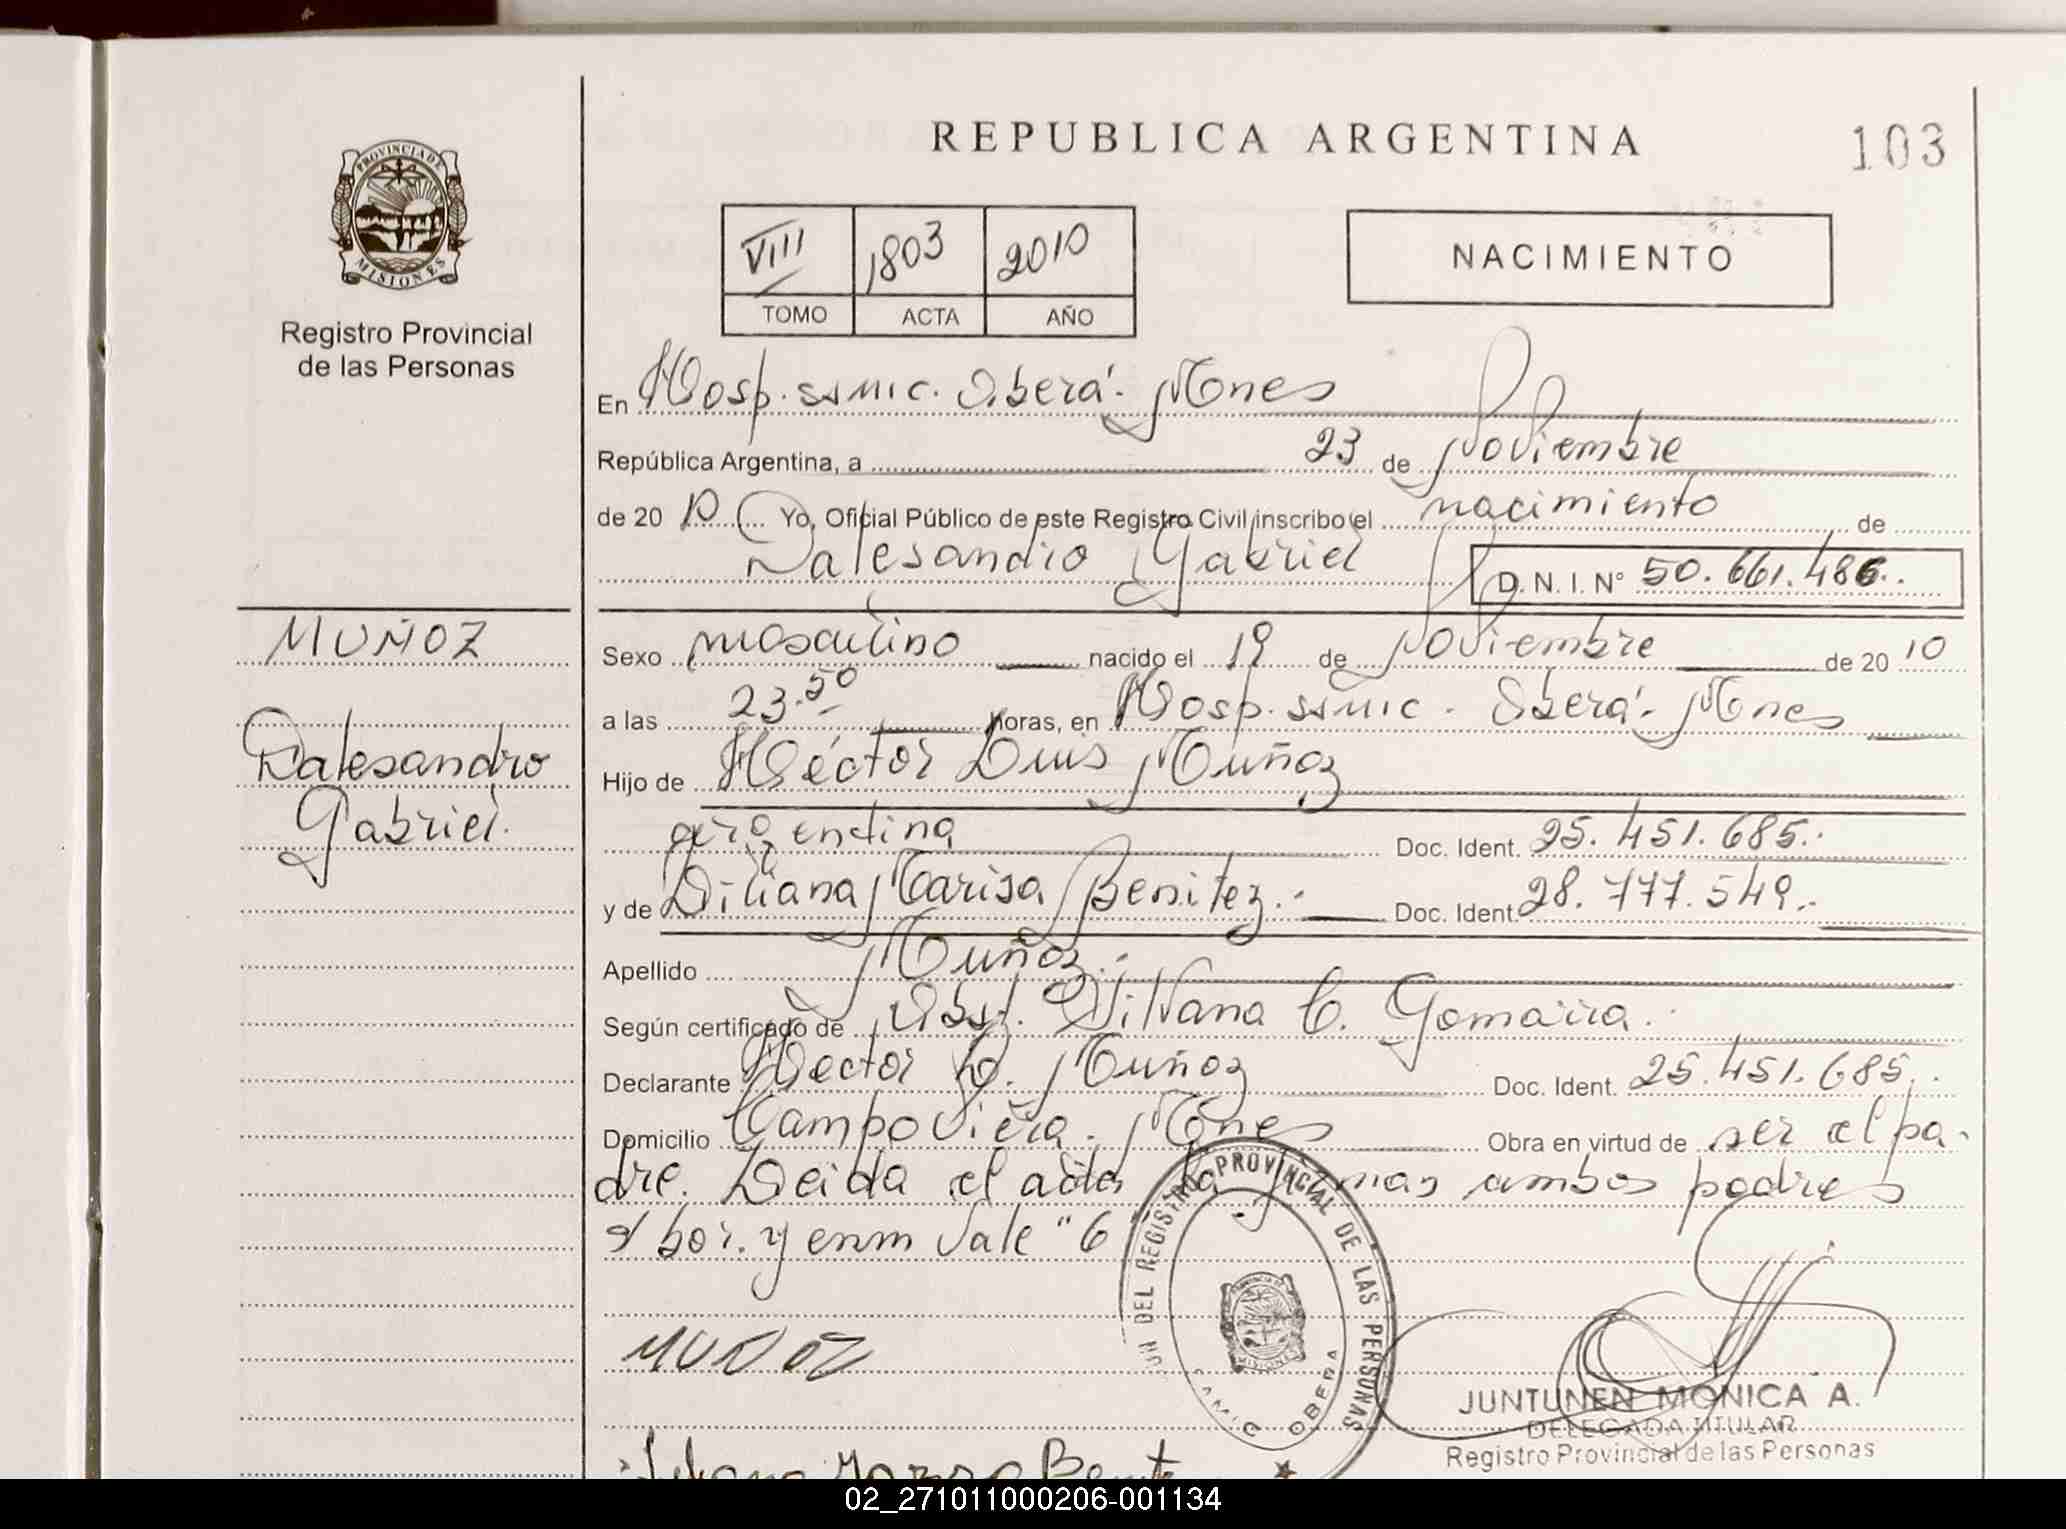 REPUBLICA ARGENTINA
103
PROVINCIA DE
MISIONES
Registro Provincial
de las Personas
VIII 1803 2010
TOMO ACTA AÑO
NACIMIENTO
En Hosp. ssmic. Oberá. Mnes
República Argentina, a 23 de Noviembre
de 20 10 Yo, Oficial Público de este Registro Civil inscribo el nacimiento de
Dalesandro Gabriel D. N. I. Nº 50.661.486..
MUÑOZ
Dalesandro
Gabriel.
Sexo masculino nacido el 19 de Noviembre de 20 10
a las 23.50 horas, en Hosp. ssmic. Oberá. Mnes
Hijo de Héctor Luis Muñoz
argentina Doc. Ident. 25.451.685.
y de Liliana Marisa Benitez. Doc. Ident. 28.777.549.
Apellido Muñoz.
Según certificado de Obst. Silvana C. Gomaira.
Declarante Hector L. Muñoz Doc. Ident. 25.451.685.
Domicilio Campo Viera. Mnes Obra en virtud de ser el pa-
dre. Leida el acta la firman ambos padres
s/ bor. y enm vale "6
MUÑOZ
DEL REGISTRO PROVINCIAL DE LAS PERSONAS
OBERA
JUNTUNEN MONICA A.
DELEGADA TITULAR
Registro Provincial de las Personas
02_271011000206-001134